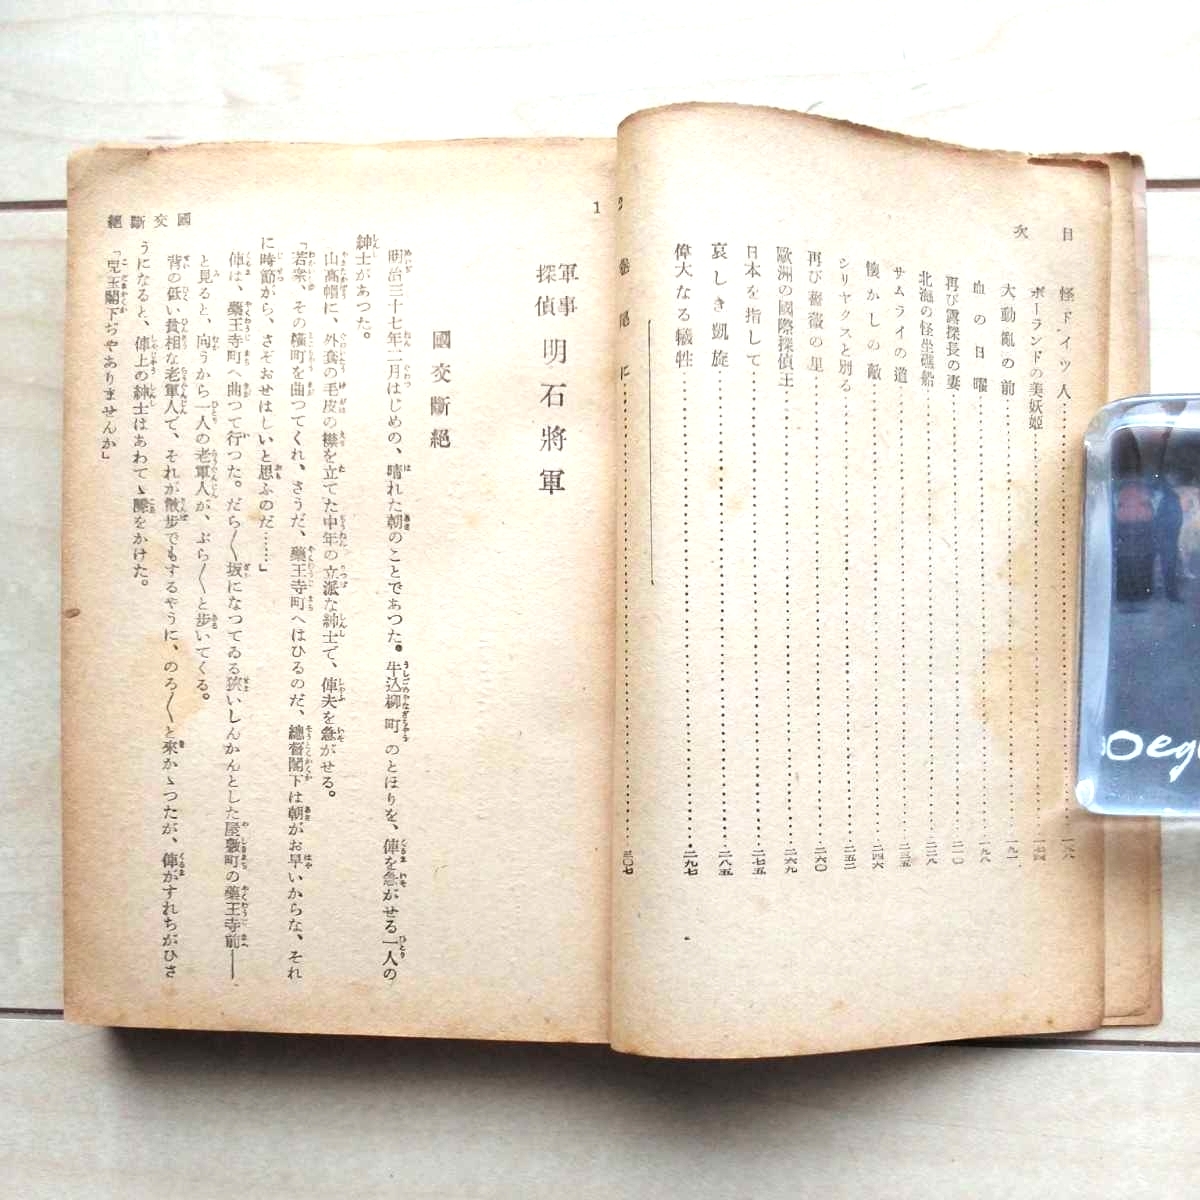 目次
怪ドイツ人
ポーランドの美妖姫
大動亂の前
血の日曜
再び露探長の妻
北海の怪坐礁船
サムライの道
懐かしの敵
シリヤクスと別る
再び薔薇の星
歐洲の國際探偵王
日本を指して
哀しき凱旋
偉大なる犠牲
卷尾に
一六八
一七四
一九一
一九八
二一〇
二二八
二三五
二四六
二五二
二六〇
二六九
二七五
二八五
二九七
三〇七
2
1
國交斷絕
軍事探偵 明石將軍
國交斷絕
明治三十七年二月はじめの、晴れた朝のことであつた。牛込柳町のとほりを、俥を急がせる一人の
紳士があつた。
山高帽に、外套の毛皮の襟を立てた中年の立派な紳士で、俥夫を急がせる。
「若衆、その橫町を曲つてくれ、さうだ、藥王寺町へはひるのだ、總督閣下は朝がお早いからな、それ
に時節がら、さぞおせはしいと思ふのだ……」
俥は、藥王寺町へ曲つて行つた。だら〳〵坂になつてゐる狹いしんかんとした屋敷町の藥王寺前――
と見ると、向うから一人の老軍人が、ぶら〳〵と步いてくる。
背の低い貧相な老軍人で、それが散步でもするやうに、のろ〳〵と來かゝつたが、俥がすれちがひさ
うになると、俥上の紳士はあわてゝ聲をかけた。
「兒玉閣下ぢやありませんか」